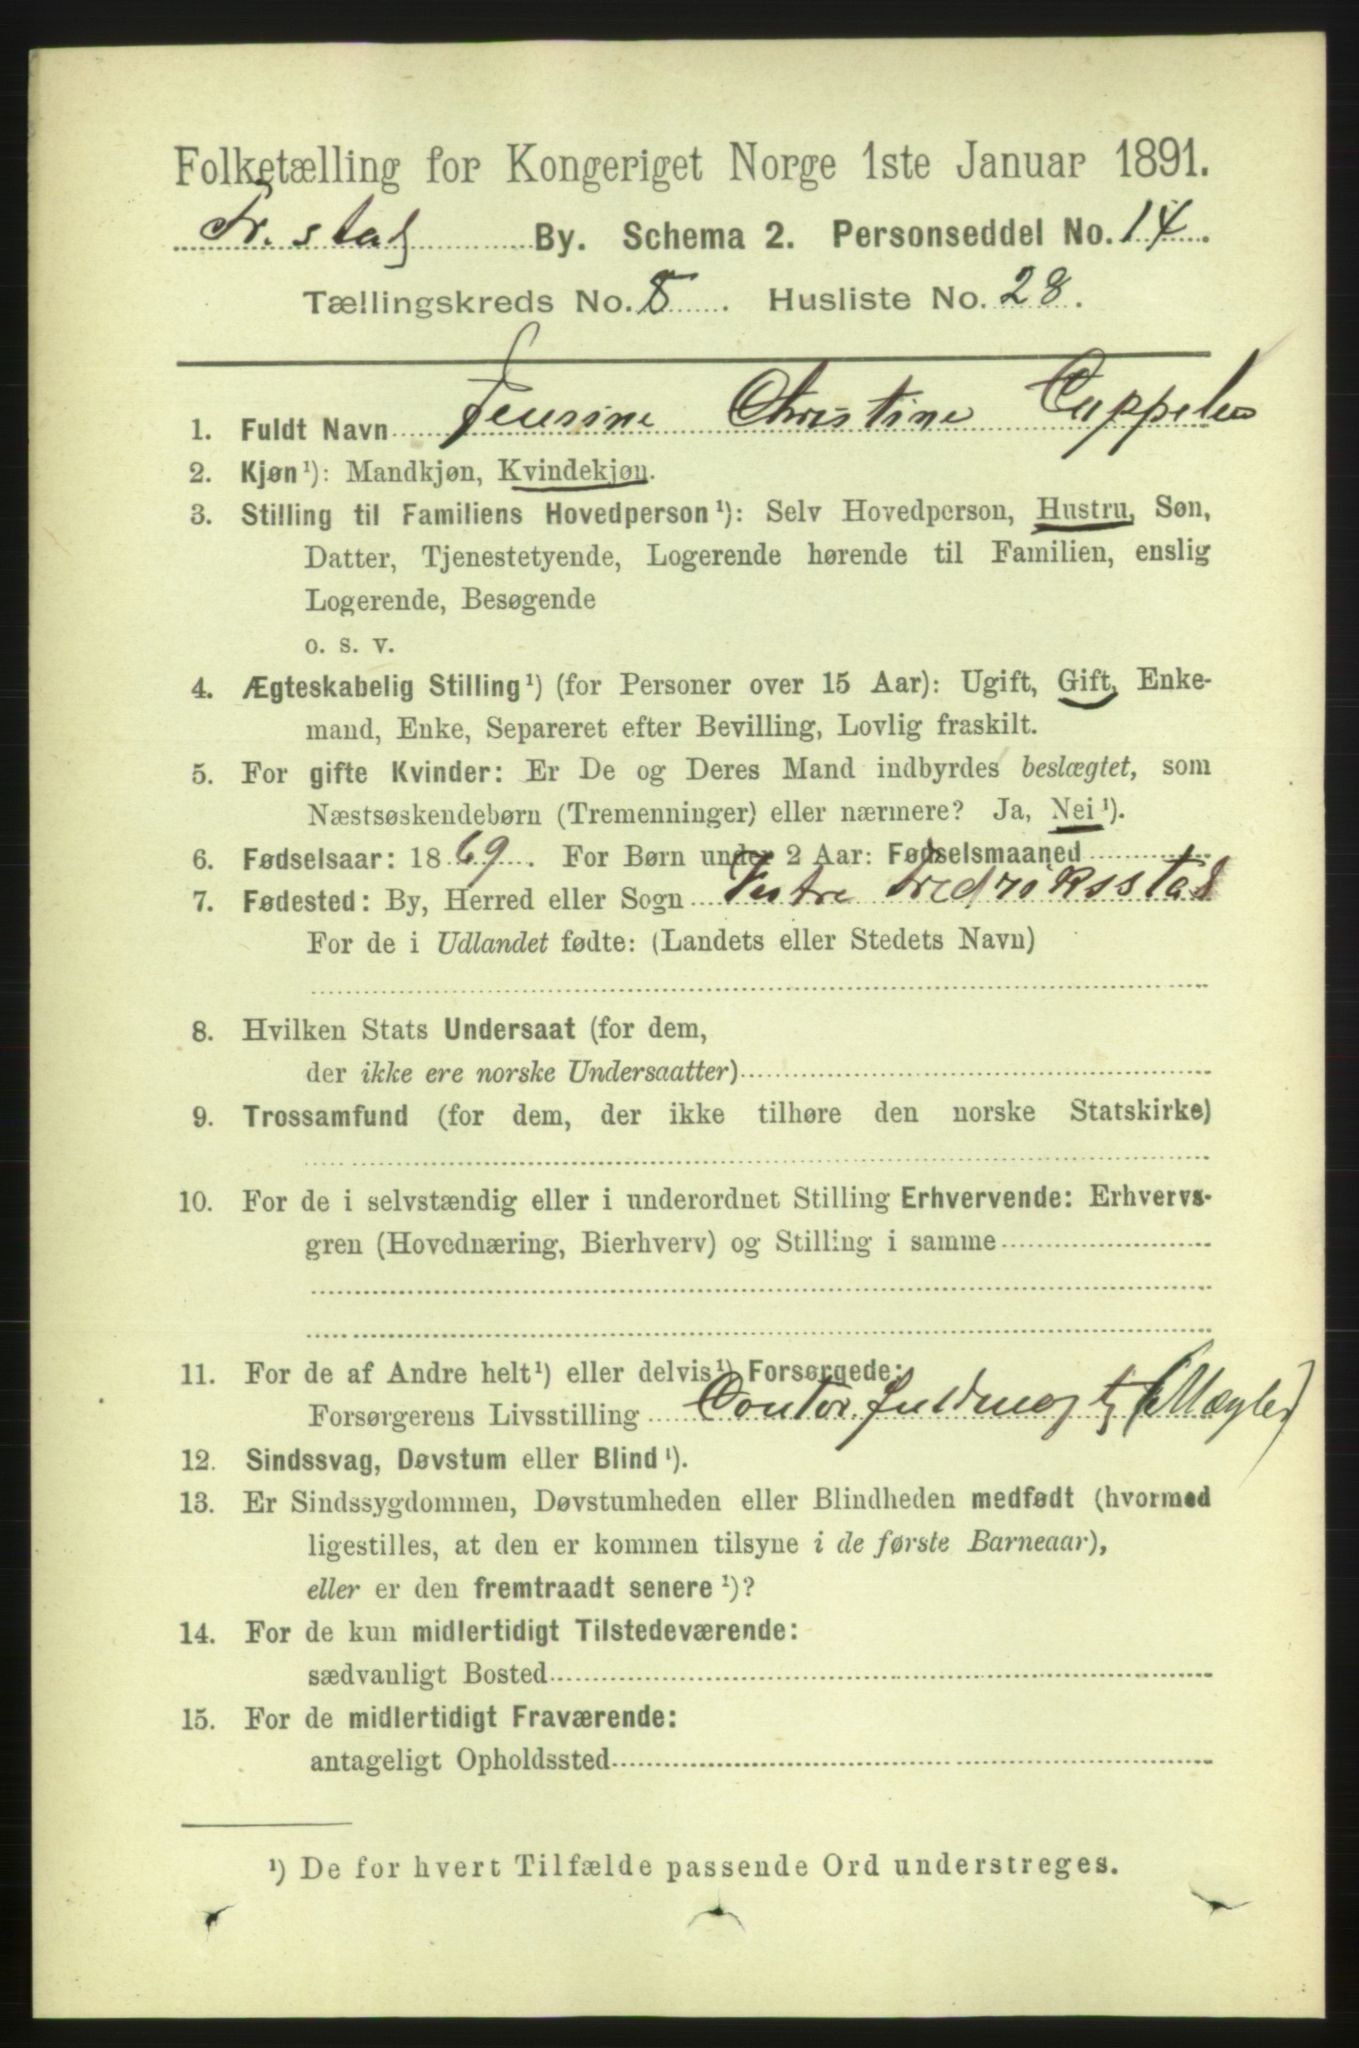 Folketælling for Kongeriget Norge 1ste Januar 1891.
Fr.stad By. Schema 2. Personseddel No. 14.
Tællingskreds No. 8. Husliste No. 28.
1. Fuldt Navn Jensine Christine Cappelen
2. Kjøn¹): Mandkjøn, Kvindekjøn.
3. Stilling til Familiens Hovedperson¹): Selv Hovedperson, Hustru, Søn,
Datter, Tjenestetyende, Logerende hørende til Familien, enslig
Logerende, Besøgende
o. s. v.
4. Ægteskabelig Stilling¹) (for Personer over 15 Aar): Ugift, Gift, Enke-
mand, Enke, Separeret efter Bevilling, Lovlig fraskilt.
5. For gifte Kvinder: Er De og Deres Mand indbyrdes beslægtet, som
Næstsøskendebørn (Tremenninger) eller nærmere? Ja, Nei¹).
6. Fødselsaar: 1869. For Børn under 2 Aar: Fødselsmaaned
7. Fødested: By, Herred eller Sogn Vestre Fredriksstad
For de i Udlandet fødte: (Landets eller Stedets Navn)
8. Hvilken Stats Undersaat (for dem,
der ikke ere norske Undersaatter)
9. Trossamfund (for dem, der ikke tilhøre den norske Statskirke)
10. For de i selvstændig eller i underordnet Stilling Erhvervende: Erhvervs-
gren (Hovednæring, Bierhverv) og Stilling i samme
11. For de af Andre helt¹) eller delvis¹) Forsørgede:
Forsørgerens Livsstilling Contorfuldmægtg (Mægler)
12. Sindssvag, Døvstum eller Blind¹).
13. Er Sindssygdommen, Døvstumheden eller Blindheden medfødt (hvormed
ligestilles, at den er kommen tilsyne i de første Barneaar),
eller er den fremtraadt senere¹)?
14. For de kun midlertidigt Tilstedeværende:
sædvanligt Bosted
15. For de midlertidigt Fraværende:
antageligt Opholdssted
¹) De for hvert Tilfælde passende Ord understreges.